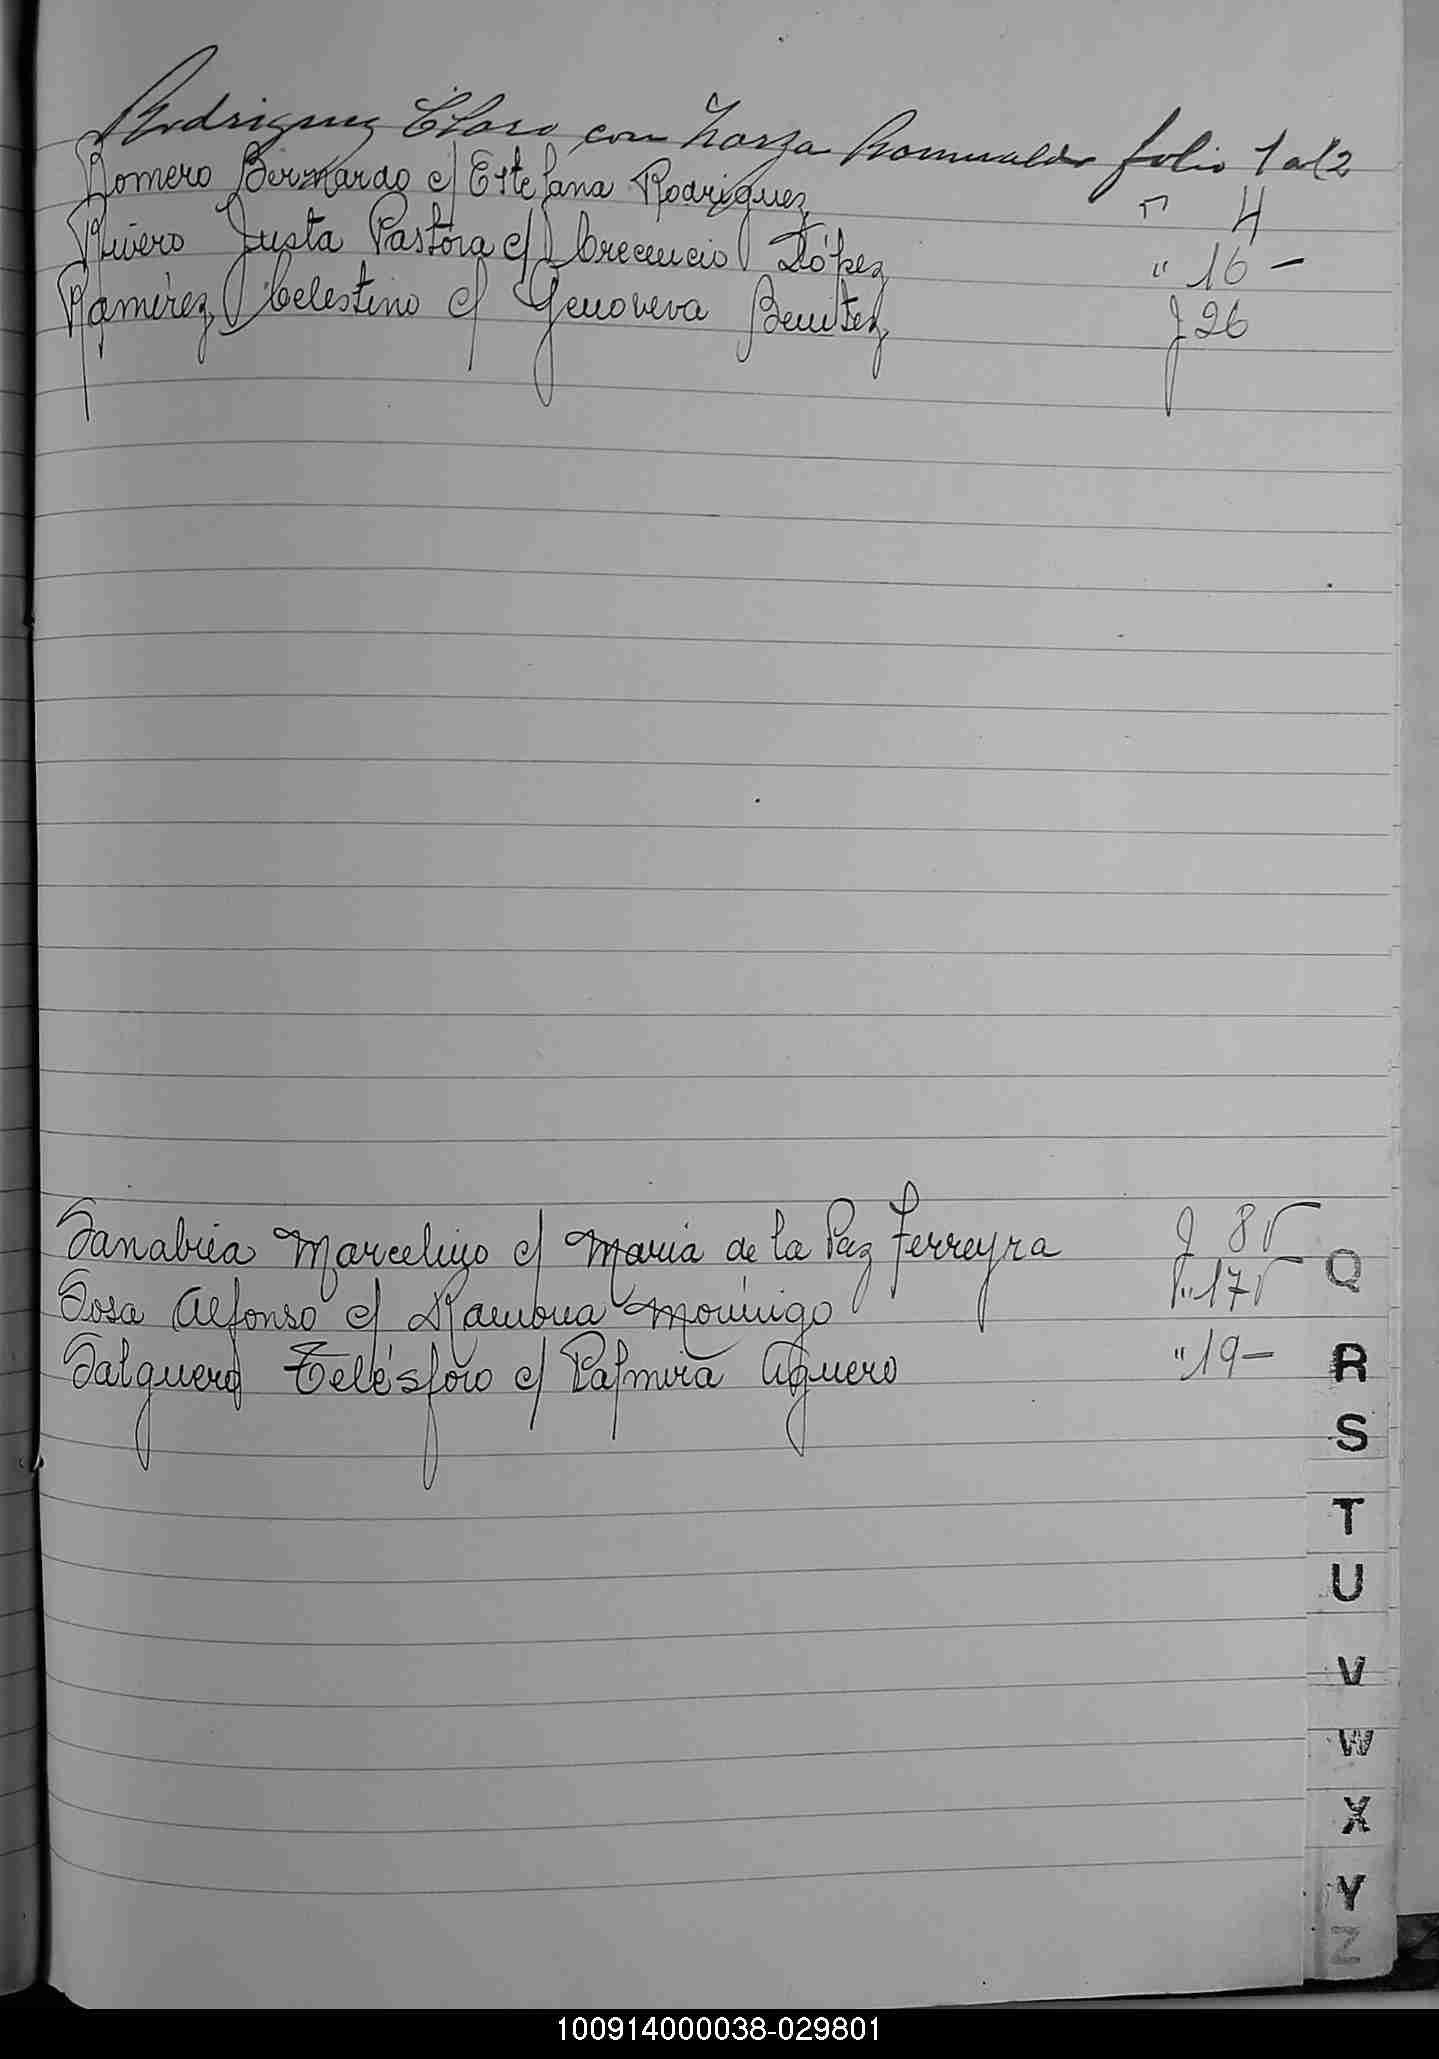 Rodriguez Claro con Zorza Romualda folio 1 al 2
Romero Bernardo c/ Estefana Rodriguez " 4
Rivero Justa Pastora c/ Crecencio López " 16 -
Ramírez, Celestino c/ Genoveva Benítez f 26
Sanabria Marcelino c/ María de la Paz Ferreyra f 8
Sosa Alfonso c/ Ramona Morínigo " 17
Salguero Telésforo c/ Palmira Aguero " 19 -
Q
R
S
T
U
V
W
X
Y
Z
100914000038-029801